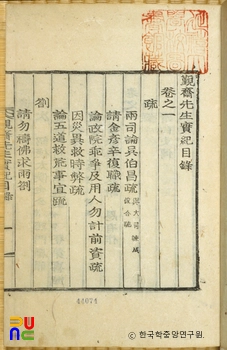 覲齋先生實紀目錄
卷之一
疏
兩司論異伯昌疏
請金彦辛復職疏
論政院乖爭及用人勿計前資疏
因災異救時弊疏
論五道救荒事宜疏
劄
請勿禱佛求雨劄
齋先生實紀目錄
44074
한국학중앙연구원.